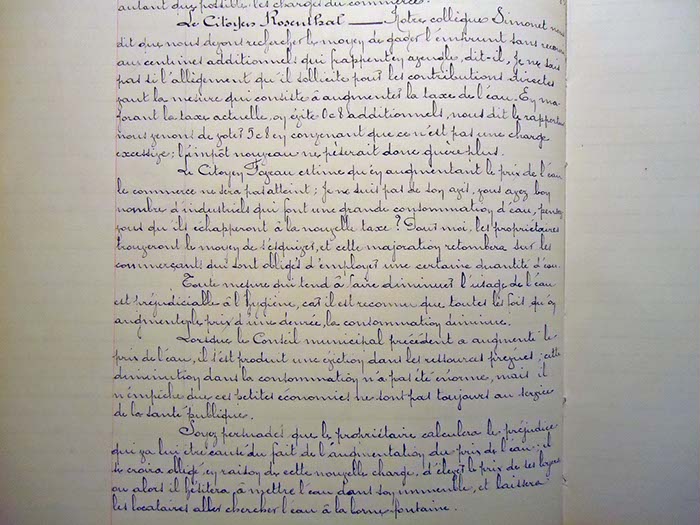 autant que possible les charges du commerce.
Le Citoyen Rosenthal — Notre collègue Simonet nous
dit que nous devons rechercher le moyen de gager l'emprunt sans recourir
aux centimes additionnels qui frappent en aveugle, dit-il, Je ne sais
pas si l'allègement qu'il sollicite pour les contributions directes
vaut la mesure qui consiste à augmenter la taxe de l'eau. En ma
jorant la taxe actuelle, on évite 0c8 additionnels, nous dit le rapporteur
nous venons de voter 5c8 en convenant que ce n'est pas une charge
excessive; l'impôt nouveau ne pèserait donc guère plus.
Le Citoyen estime qu'en augmentant le prix de l'eau
le commerce ne sera pas atteint; Je ne suis pas de son avis, vous avez bon
nombre d'industriels qui font une grande consommation d'eau, pensez
vous qu'ils échapperont à la nouvelle taxe? Pour moi, les propriétaires
trouveront le moyen de s'esquiver, et cette majoration retombera sur les
commerçants qui sont obligés d'employer une certaine quantité d'eau.
Toute mesure qui tend à faire diminuer l'usage de l'eau
est préjudiciable à l'hygiène, car il est reconnu que toutes les fois qu'on
augmente le prix d'une denrée, la consommation diminue.
Lorsque le Conseil municipal précédent a augmenté le
prix de l'eau, il s'est produit une éviction dans les ressources prévues; cette
diminution dans la consommation n'a pas été énorme, mais il
n'empêche que ces petites économies ne sont pas toujours au service
de la santé publique.
Soyez persuadés que le propriétaire calculera le préjudice
qui va lui être causé du fait de l'augmentation du prix de l'eau: il
se croira obligé, en raison de cette nouvelle charge, d'élever le prix de ses loyers
ou alors il hésitera à mettre l'eau dans son immeuble, et laissera
les locataires aller chercher l'eau à la borne fontaine.